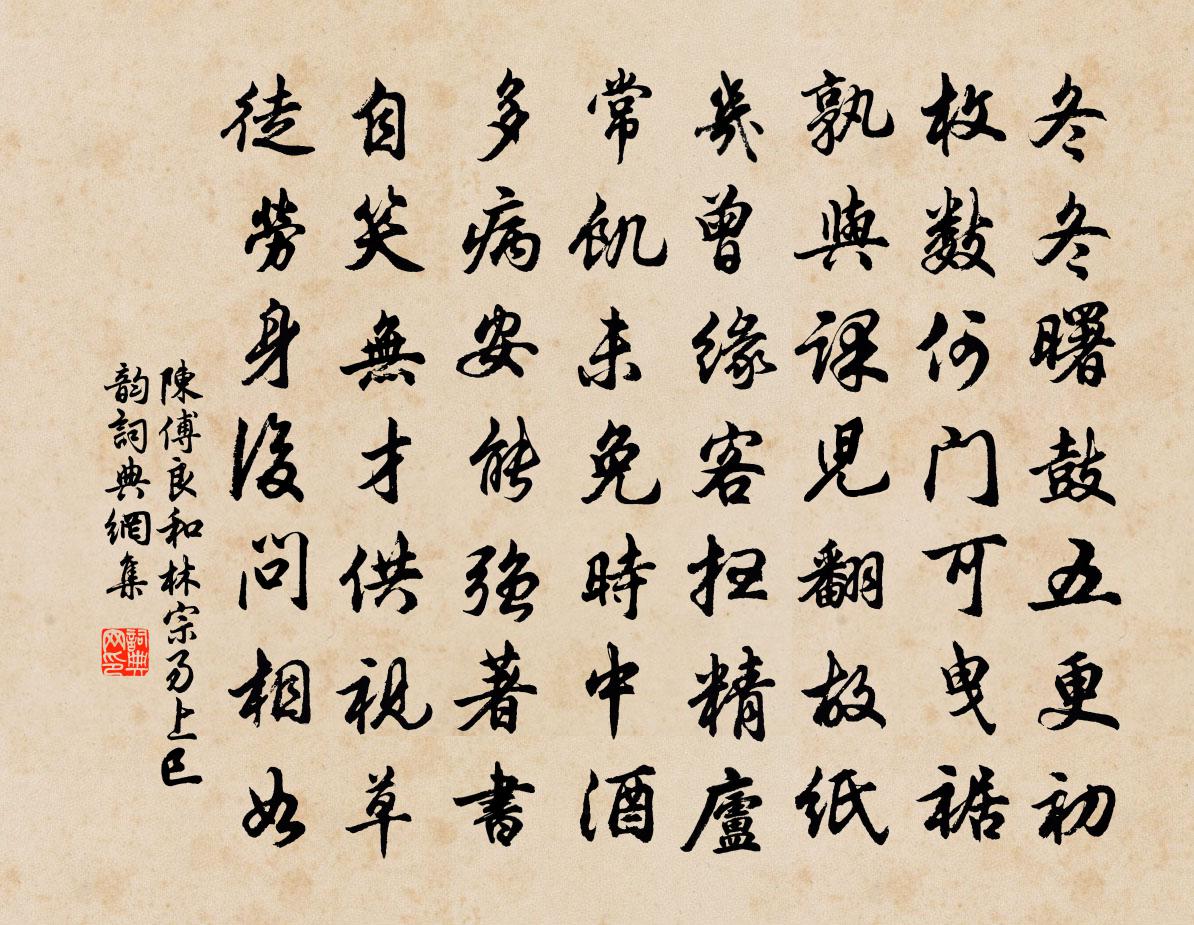 冬冬曙鼓五更初
枚數何门可曳裾
孰與課児翻故紙
幾曾缘客扫精廬
常飢未免時中酒
多病安能強著書
自笑無才供視草
徒勞身後問相如
陳傅良和林宗易上巳
韵詞典網集
詞典
网印